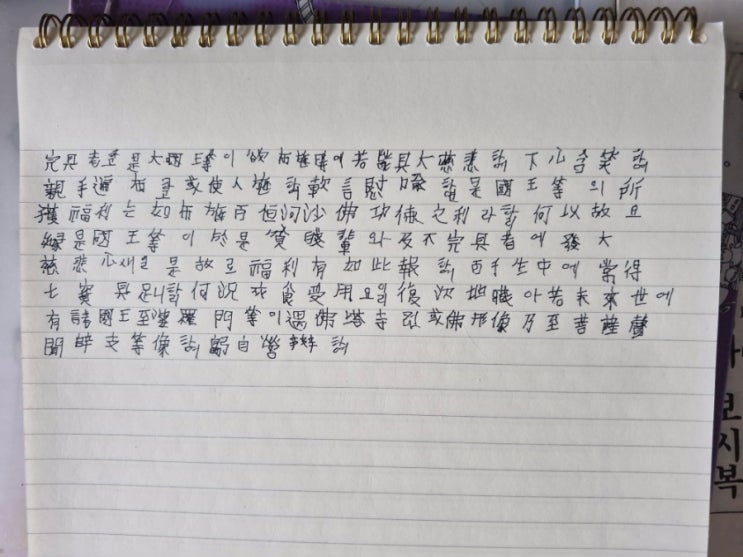 完具者를 是大國王等이 欲布施時에 若能具大慈悲하 下心含笑하
親手遍布를 或使人施하 軟言慰喩하 是國王等의 所
獲福利는 如布施百恒河沙佛功德之利라하 何以故오
緣是國王等이 於是貧賤輩와 及不完具者에 發大
慈悲心새로 是故로 福利有如此報하 百千生中에 常得
七寶具足하 何況衣食受用 復次地藏아 若未來世에
有諸國王至婆羅門等이 遇佛塔寺 或佛形像 乃至菩薩聲
聞辟支等像하 躬自營辦하
보시복